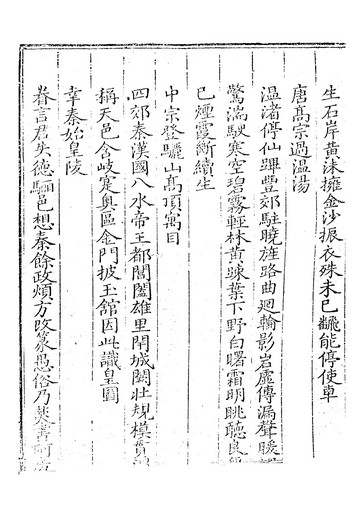 生石岸黄沫擁金沙振衣殊未已飜能停使車
唐髙宗過温湯
温渚停仙蹕豐郊駐曉旌路曲廻輪影岩虛傳漏聲暖
驚湍駛寒空碧霧輕林黄踈葉下野白曙霜明眺聽良
已煙霞斷續生
中宗登驪山髙頂寓目
四郊秦漢國八水帝王都閶闔雄里閈城闕壯規模貫
稱天邑含岐寔奥區金門披玉舘因此識皇圖
幸秦始皇陵
眷言君失德驪邑想秦餘政煩方改篆愚俗乃焚書